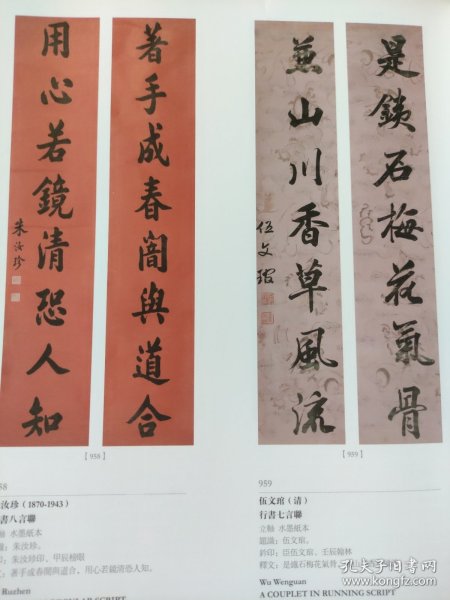 著手成春闇與道合
用心若鏡清恐人知
朱汝珍
是銕石梅花氣骨
兼山川香草風流
伍文琯
【958】
【959】
58
汝珍（1870-1943）
書八言聯
立軸 水墨紙本
識：朱汝珍。
印：朱汝珍印、甲辰榜眼
：著手成春闇與道合，用心若鏡清恐人知。
Ruzhen
959
伍文琯（清）
行書七言聯
立軸 水墨紙本
題識：伍文琯。
鈐印：臣伍文琯、壬辰翰林
釋文：是鐵石梅花氣骨
Wu Wenguan
A COUPLET IN RUNNING SCRIPT
孔夫子旧书网